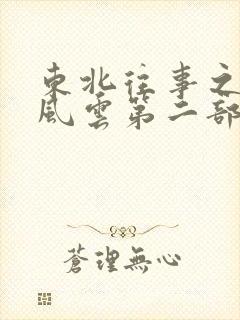 東北往事之
風雲第二部
蒼理無心